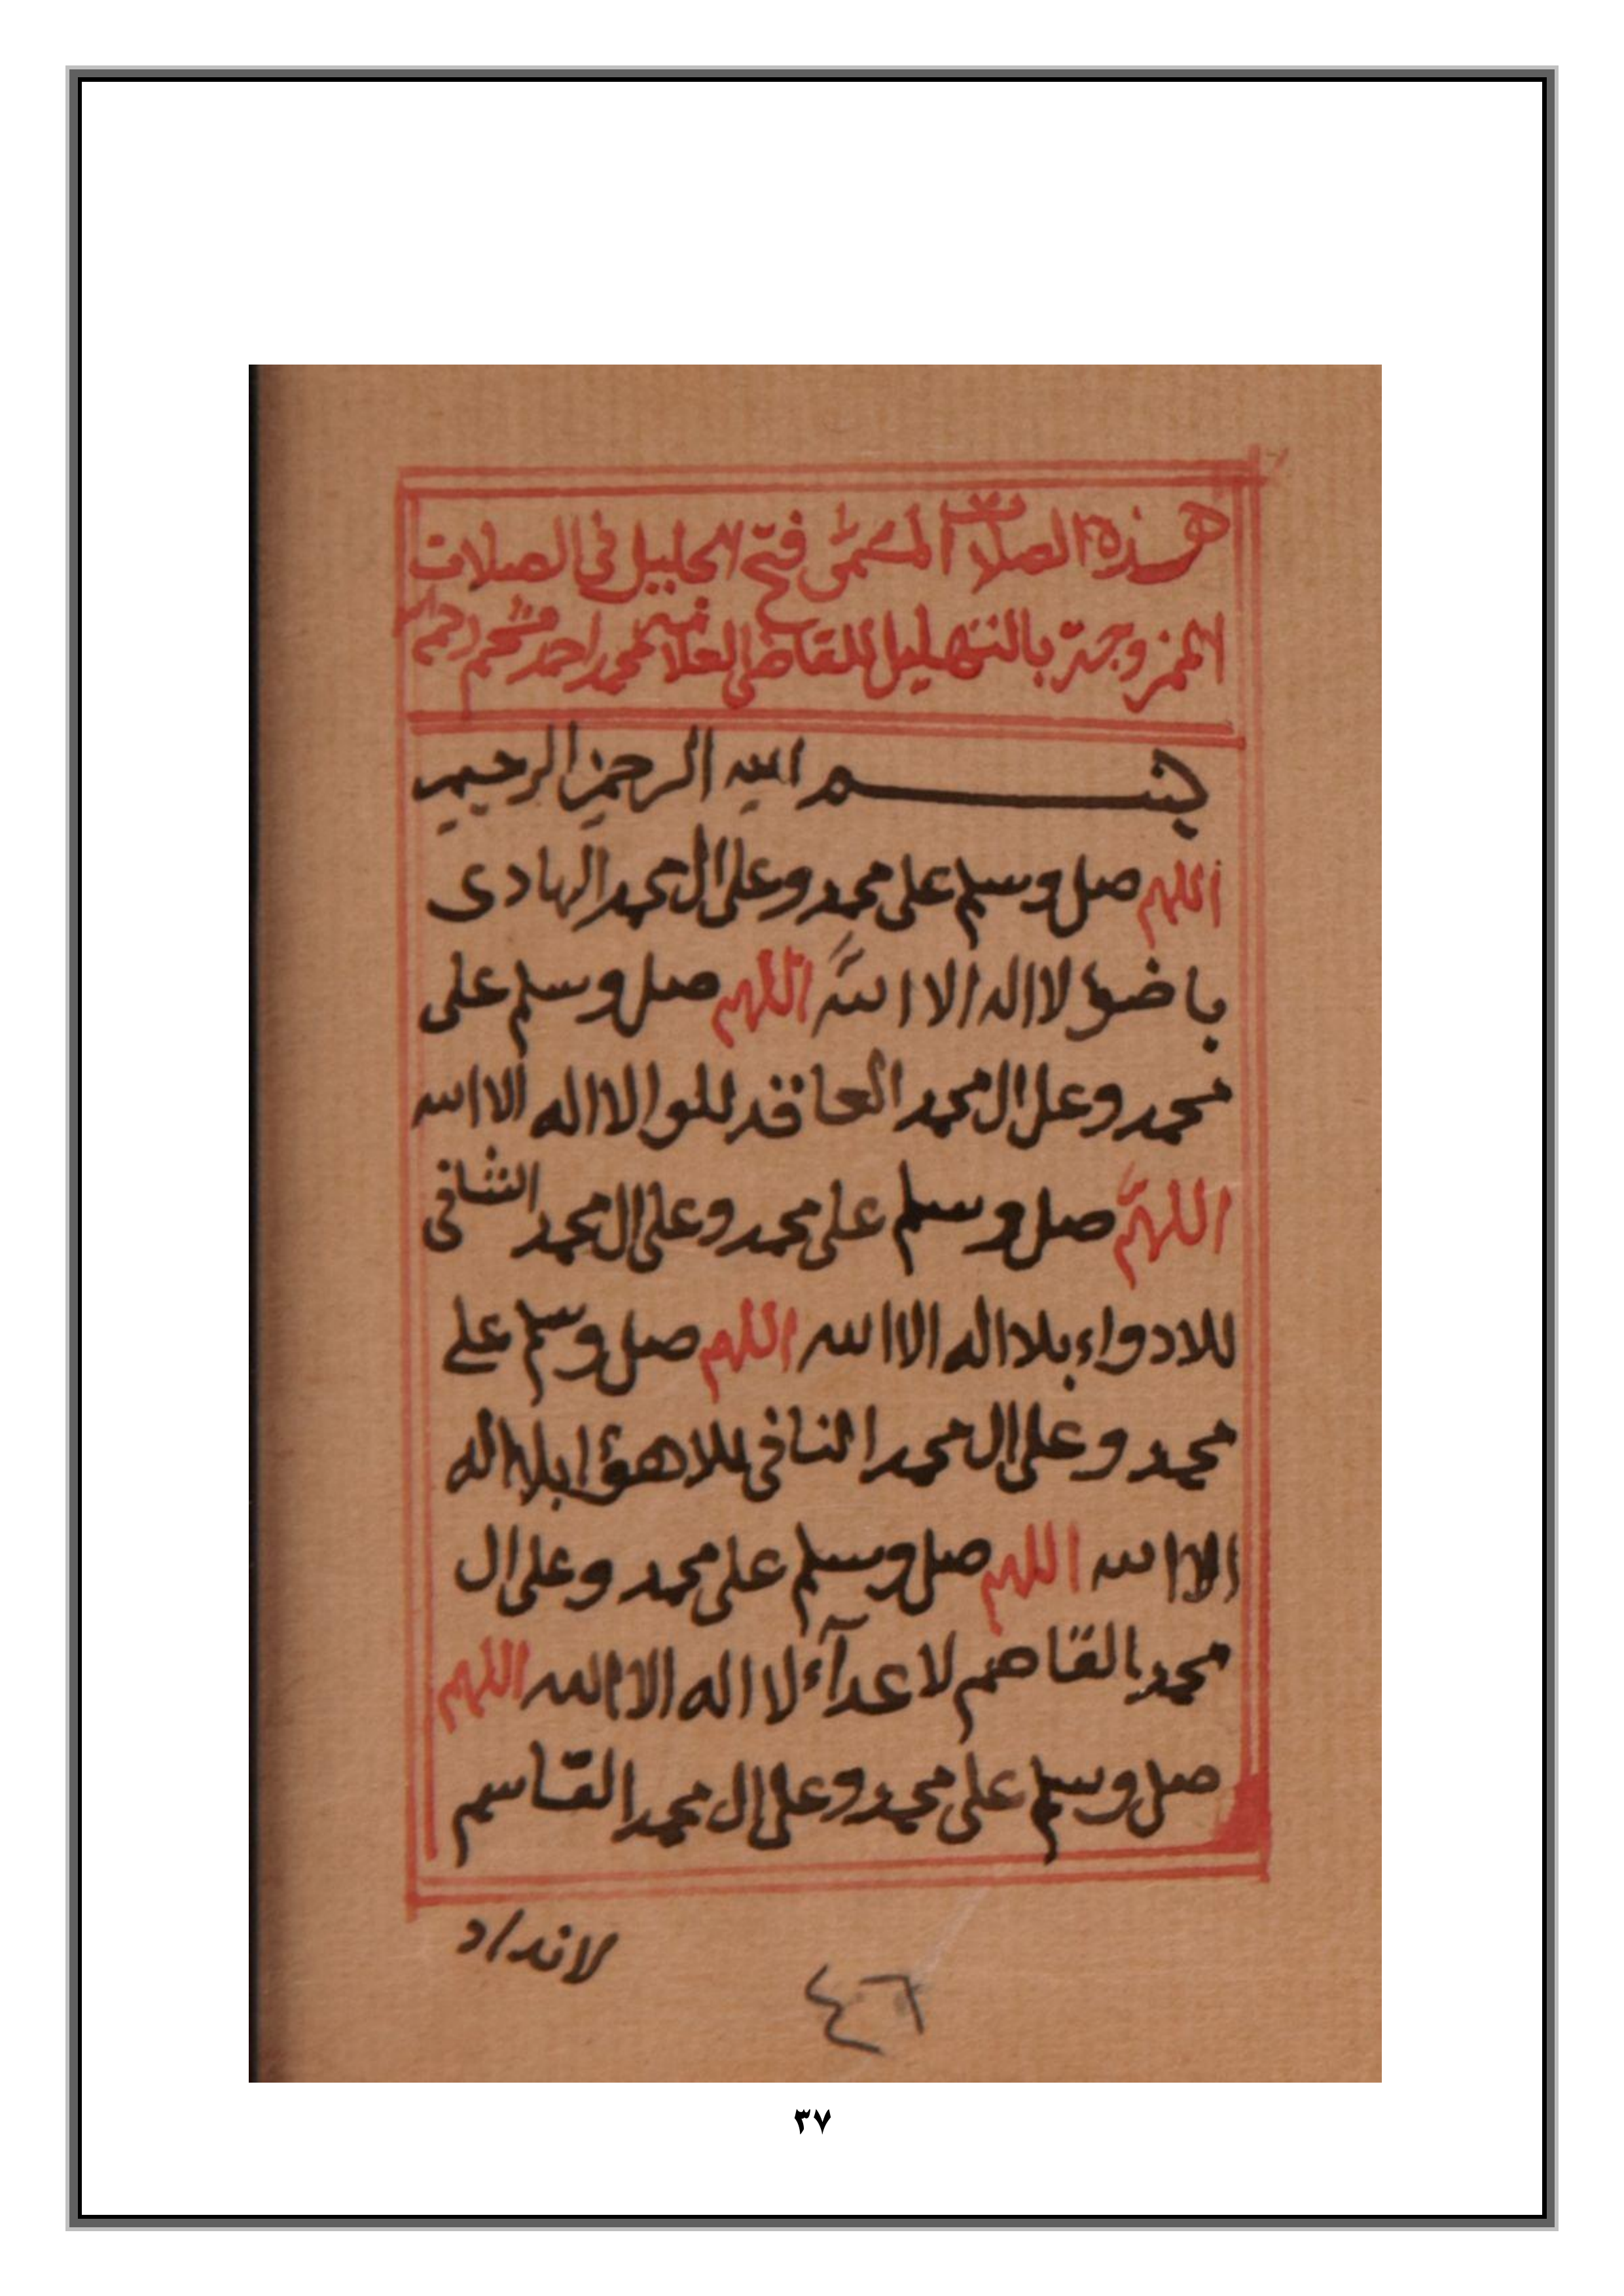 هذه الصلات المسمى فتح الجليل في الصلات
الممزوجة بالتهليل للقاضي العلامة محمد احمد مشحم رحمه الله
بسم الله الرحمن الرحيم
اللهم صل وسلم على محمد وعلى ال محمد الهادى
باضوا لا اله الا الله اللهم صل وسلم على
محمد وعلى ال محمد العاقد للوا لا اله الا الله
اللهم صل وسلم على محمد وعلى ال محمد الشافى
للادواء بلا اله الا الله اللهم صل وسلم على
محمد وعلى ال محمد النافى للاهوا بلا اله
الا الله اللهم صل وسلم على محمد وعلى ال
محمد القاصم لاعدآء لا اله الا الله اللهم
صل وسلم على محمد وعلى ال محمد القاسم
لانداد
٤٦
٣٧